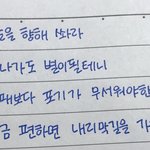 을 향해 쏴라
나가도 별이될테니
패보다 포기가 무서워야한
금 편하면 내리막길을 가